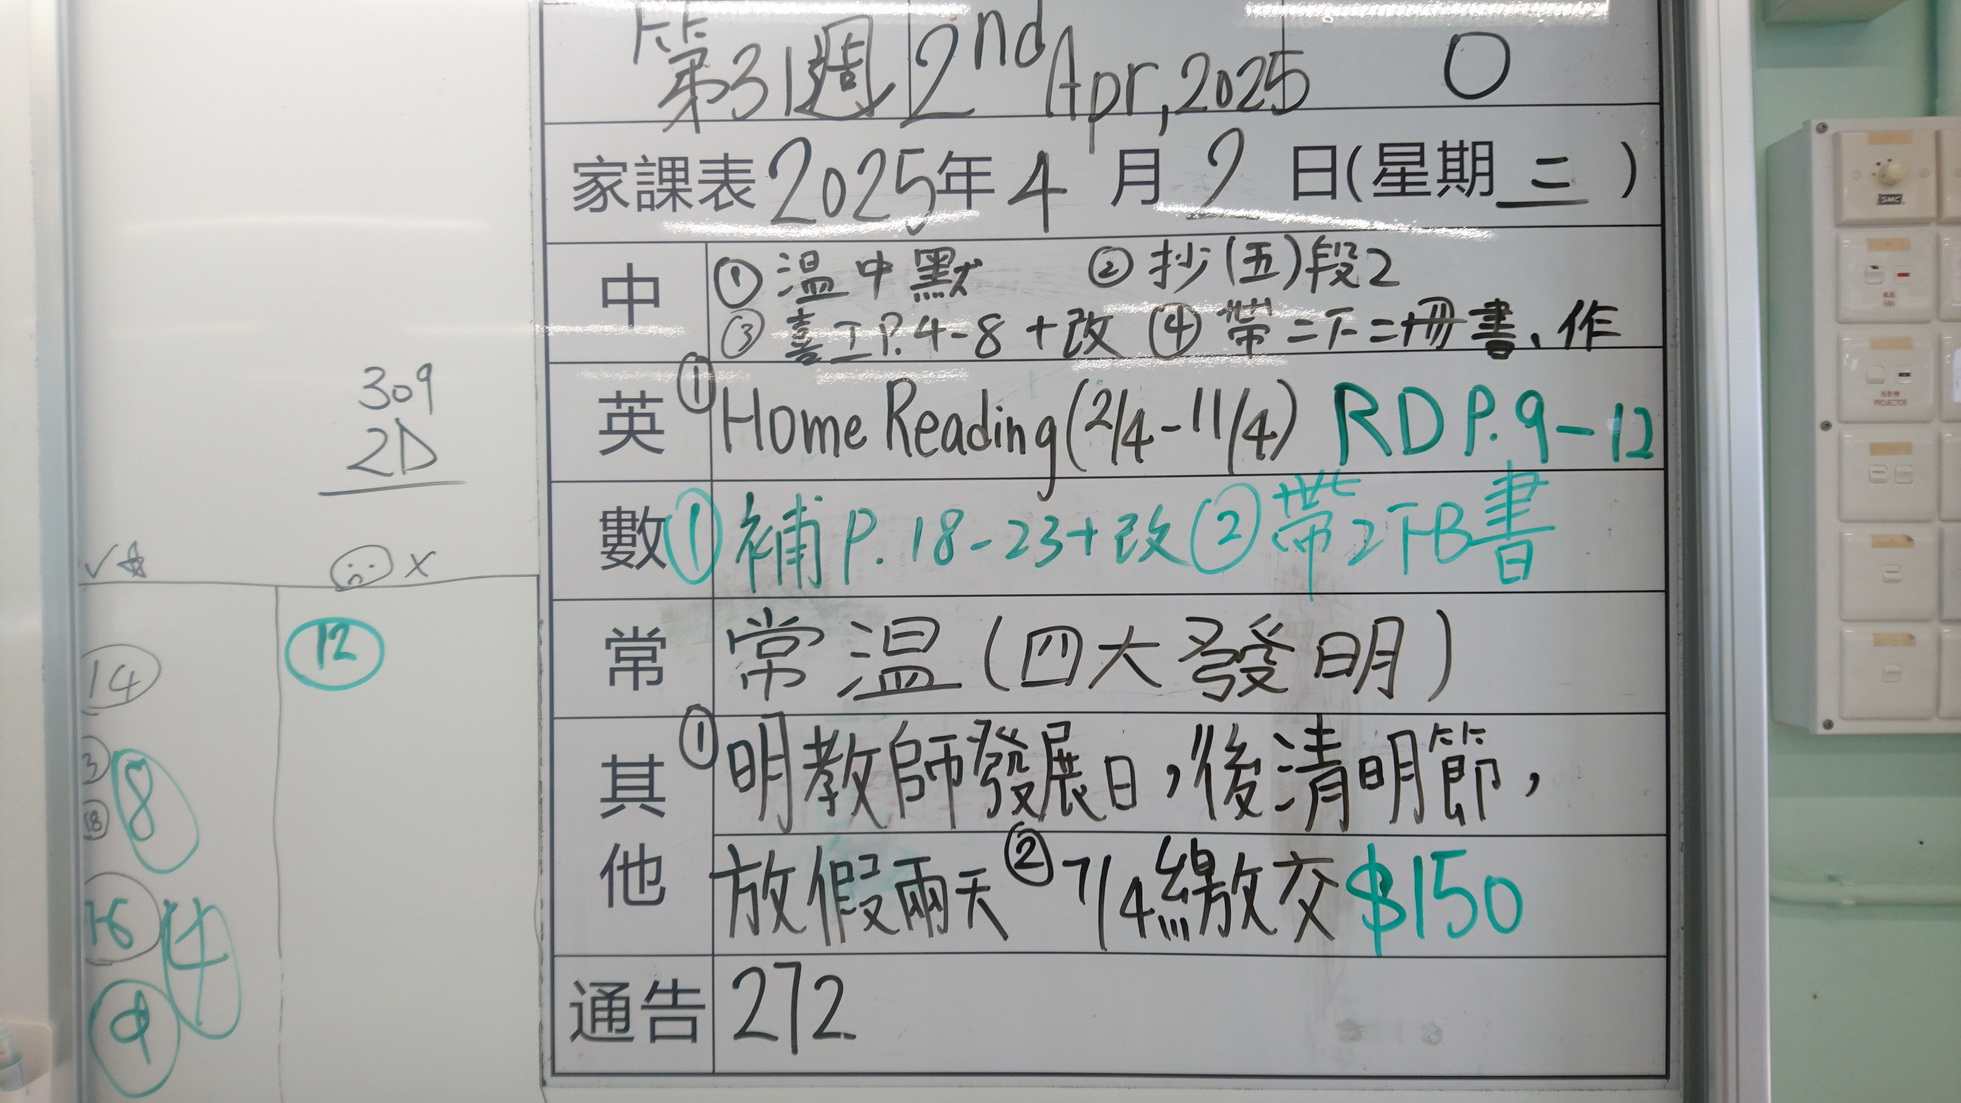 第31週 2nd Apr, 2025 0
家課表 2025年 4 月 2 日(星期 三 )
中 ① 温中默 ② 抄(五)段2
③ 喜工P.4-8 +改 ④ 帶二下二冊書、作
英 ① Home Reading (2/4-11/4) RD P.9-12
數 ① 補 P.18-23+改 ② 帶2下B書
常 常温(四大發明)
其他 ① 明教師發展日,後清明節,
放假兩天 ② 7/4繳交$150
通告 272
309
2D
✓ ☆ ☹ x
14 12
3 8
18
16 4
9
SMC
FAN
PROJECTOR